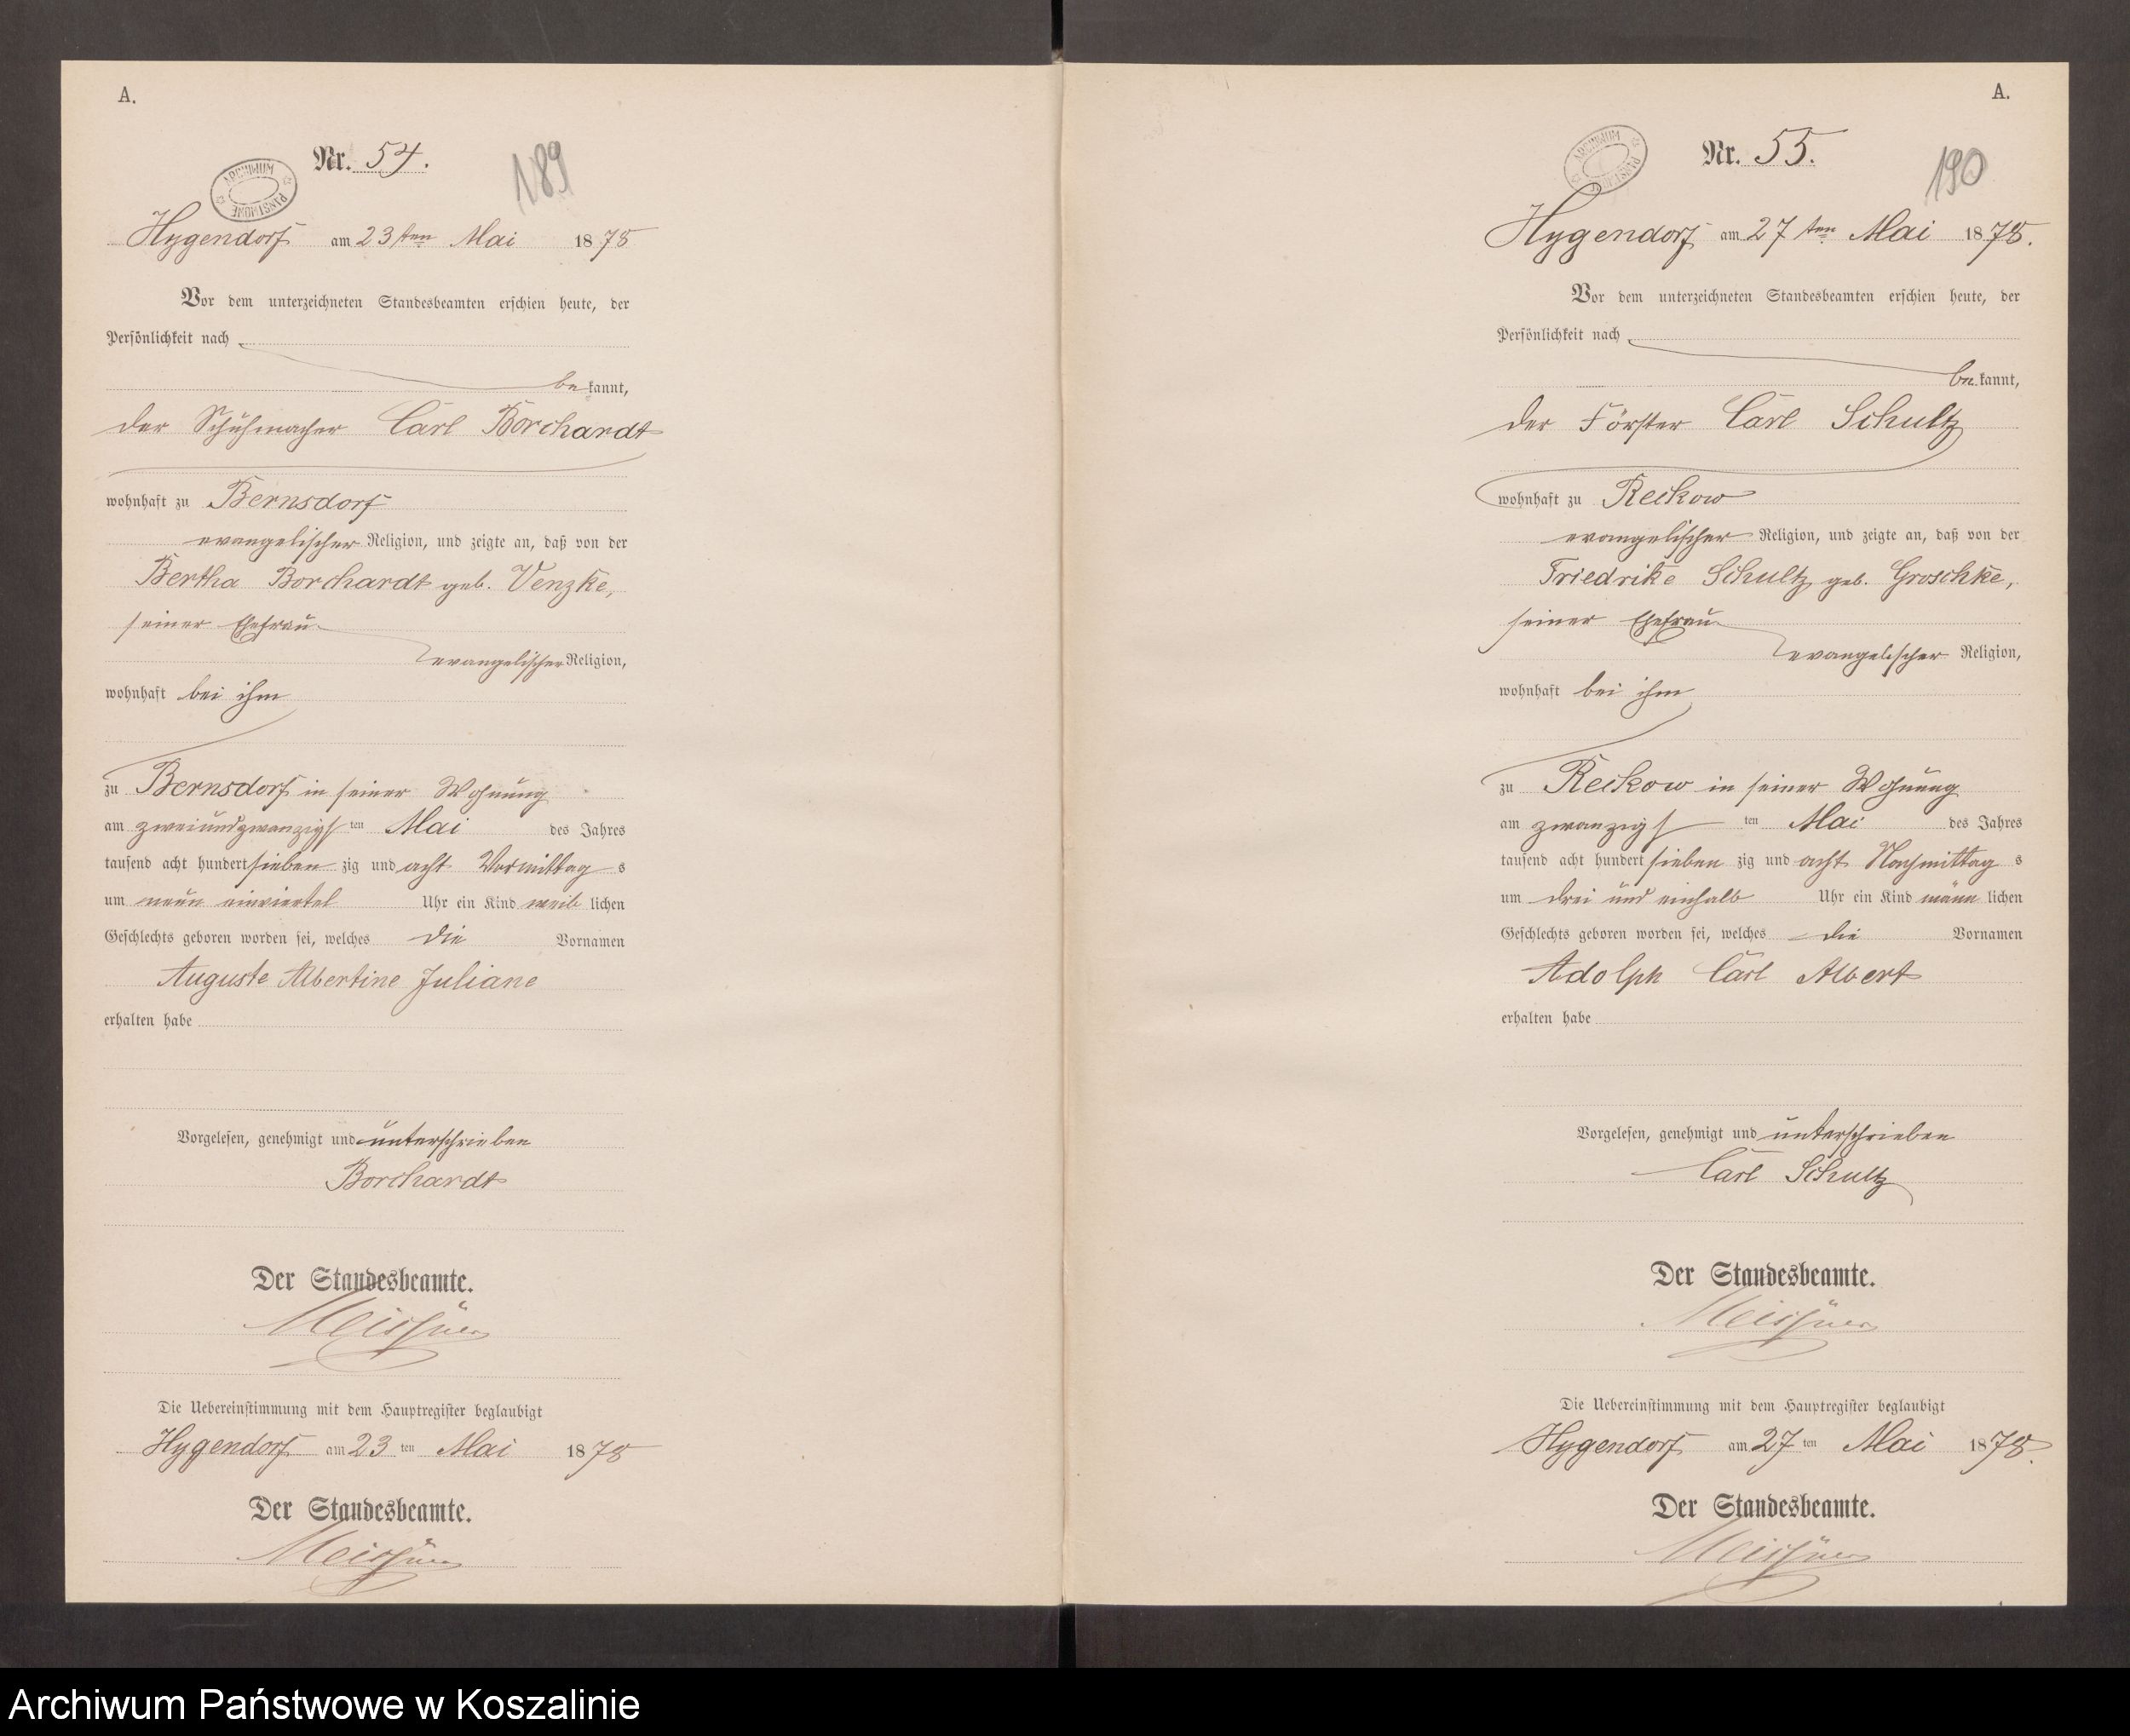 A.
Nr. 54.
189
ARCHIWUM PAŃSTWOWE
Hygendorf am 23 ten Mai 1878
Vor dem unterzeichneten Standesbeamten erschien heute, der
Persönlichkeit nach
bekannt,
der Schuhmacher Carl Borchardt
wohnhaft zu Bernsdorf
evangelischer Religion, und zeigte an, daß von der
Bertha Borchardt geb. Venzke,
seiner Ehefrau
evangelischer Religion,
wohnhaft bei ihm
zu Bernsdorf in seiner Wohnung
am zweiundzwanzigsten Mai des Jahres
tausend acht hundert siebenzig und acht Vormittags
um neun einviertel Uhr ein Kind weiblichen
Geschlechts geboren worden sei, welches die Vornamen
Auguste Albertine Juliane
erhalten habe
Vorgelesen, genehmigt und unterschrieben
Borchardt
Der Standesbeamte.
Die Uebereinstimmung mit dem Hauptregister beglaubigt
Hygendorf am 23 ten Mai 1878
Der Standesbeamte.
A.
Nr. 55.
190
ARCHIWUM PAŃSTWOWE
Hygendorf am 27 ten Mai 1878.
Vor dem unterzeichneten Standesbeamten erschien heute, der
Persönlichkeit nach
bekannt,
der Förster Carl Schultz
wohnhaft zu Reckow
evangelischer Religion, und zeigte an, daß von der
Friedrike Schultz geb. Groschke,
seiner Ehefrau
evangelischer Religion,
wohnhaft bei ihm
zu Reckow in seiner Wohnung
am zwanzigsten Mai des Jahres
tausend acht hundert siebenzig und acht Nachmittags
um drei und einhalb Uhr ein Kind männlichen
Geschlechts geboren worden sei, welches die Vornamen
Adolph Carl Albert
erhalten habe
Vorgelesen, genehmigt und unterschrieben
Carl Schultz
Der Standesbeamte.
Die Uebereinstimmung mit dem Hauptregister beglaubigt
Hygendorf am 27 ten Mai 1878.
Der Standesbeamte.
Archiwum Państwowe w Koszalinie